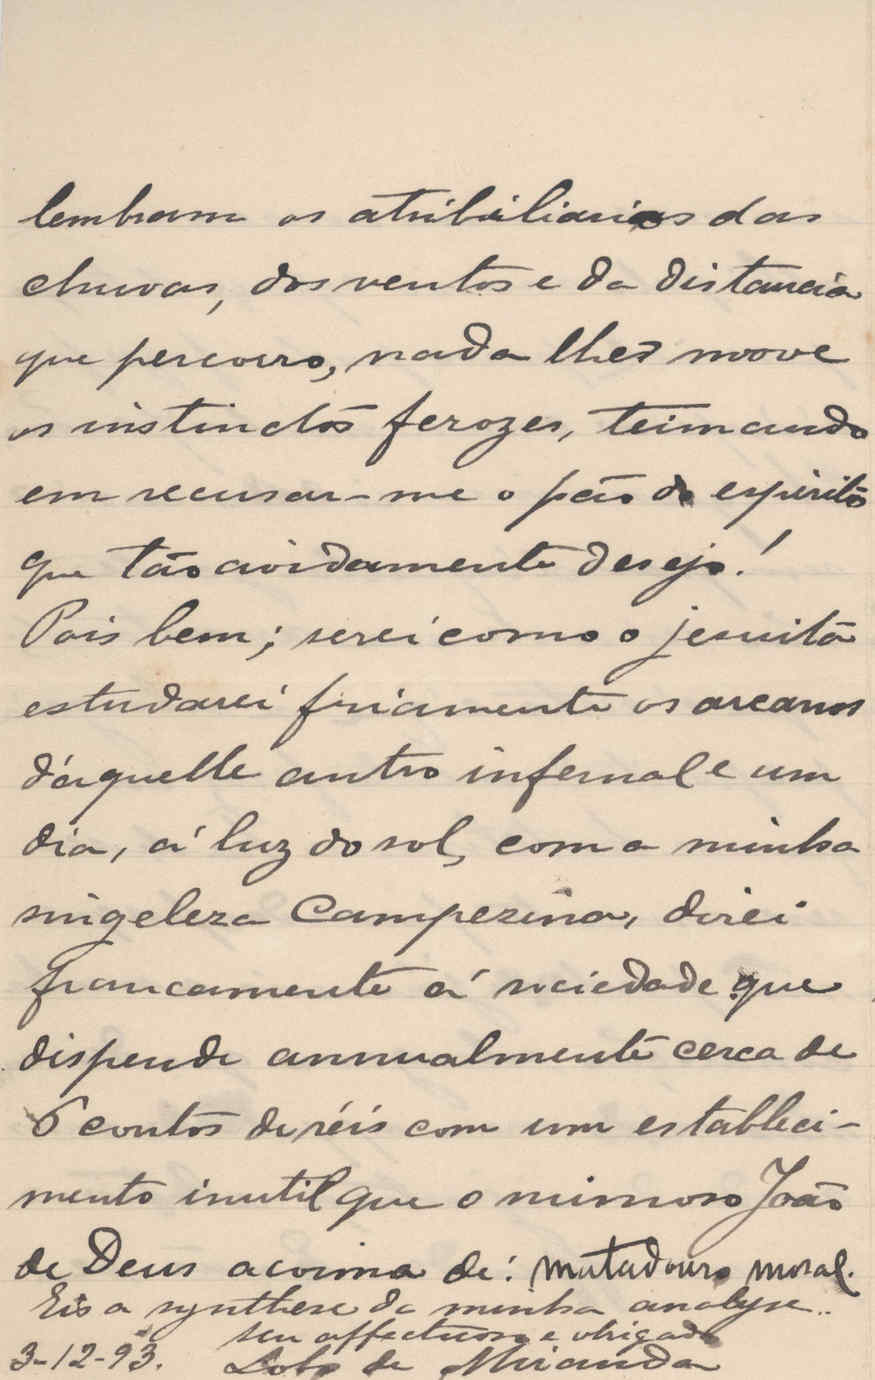 lembram os atribiliarios das
chuvas, dos ventos e da distancia
que percorro, nada lhes move
os instinctos ferozes, teimando
em recusar-me o pão do espirito
que tão avidamente desejo!
Pois bem; serei como o jesuita
estudarei friamente os arcanos
d'aquelle antro infernal e um
dia, á luz do sol, com a minha
singeleza campezina, direi
francamente á sociedade que
dispende annualmente cerca de
6 contos de réis com um estableci-
mento inutil que o mimoso João
de Deus acoima de: matadouro moral.
Eis a synthese da minha analyse..
seu affectuoso e obrigado
3-12-93. Lobo de Miranda